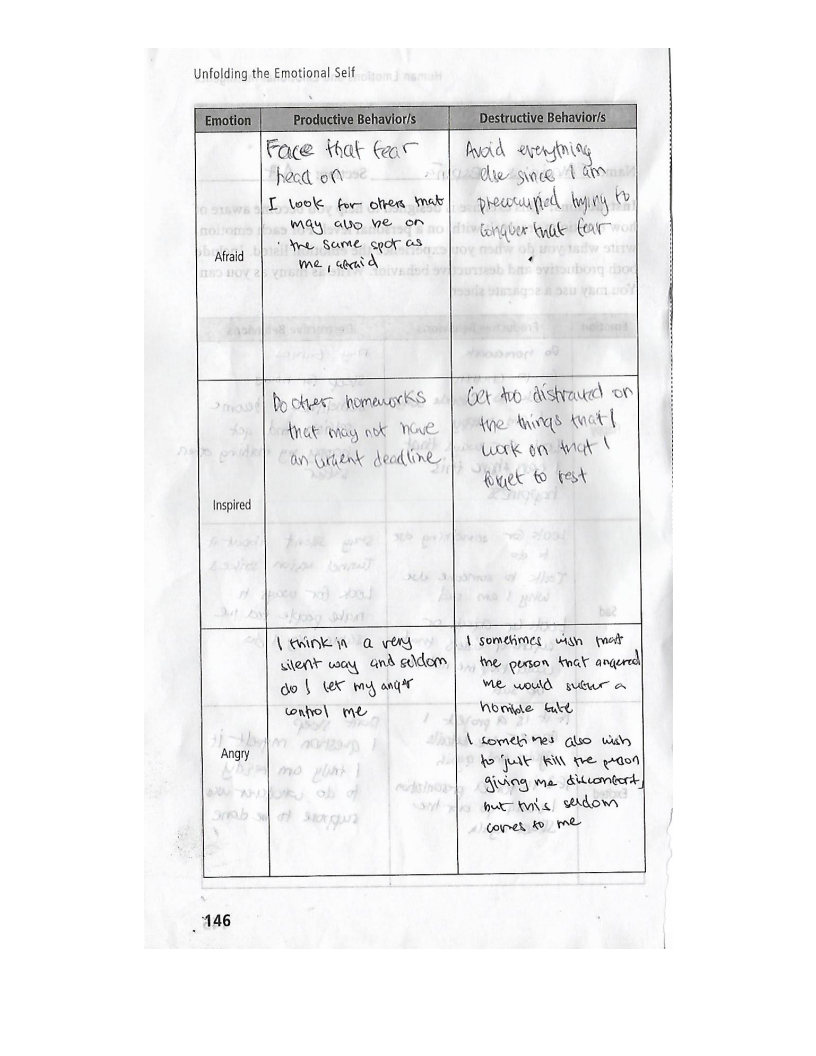 Unfolding the Emotional Self
Emotion Productive Behavior/s Destructive Behavior/s
Afraid
Face that fear
head on
I look for others that
may also be on
the same spot as
me, afraid
Avoid everything
else since I am
preoccupied trying to
conquer that fear
Inspired
Do other homeworks
that may not have
an urgent deadline
Get too distracted on
the things that I
work on that I
forget to rest
Angry
I think in a very
silent way and seldom
do I let my anger
control me
I sometimes wish that
the person that angered
me would suffer a
horrible fate
I sometimes also wish
to just kill the person
giving me discomfort,
but this seldom
comes to me
146